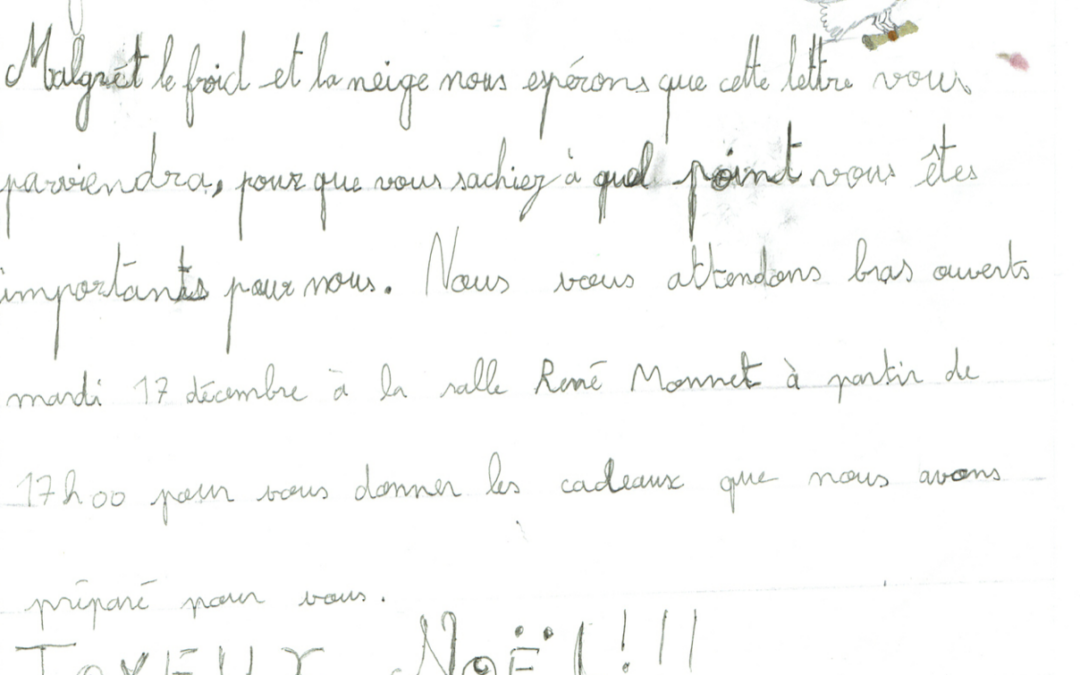 Malgrét le froid et la neige nous espérons que cette lettre vous
parviendra, pour que vous sachiez à quel point vous êtes
importants pour nous. Nous vous attendons bras ouverts
mardi 17 décembre à la salle René Monnet à partir de
17h00 pour vous donner les cadeaux que nous avons
préparé pour vous.
JOYEUX NOËL!!!